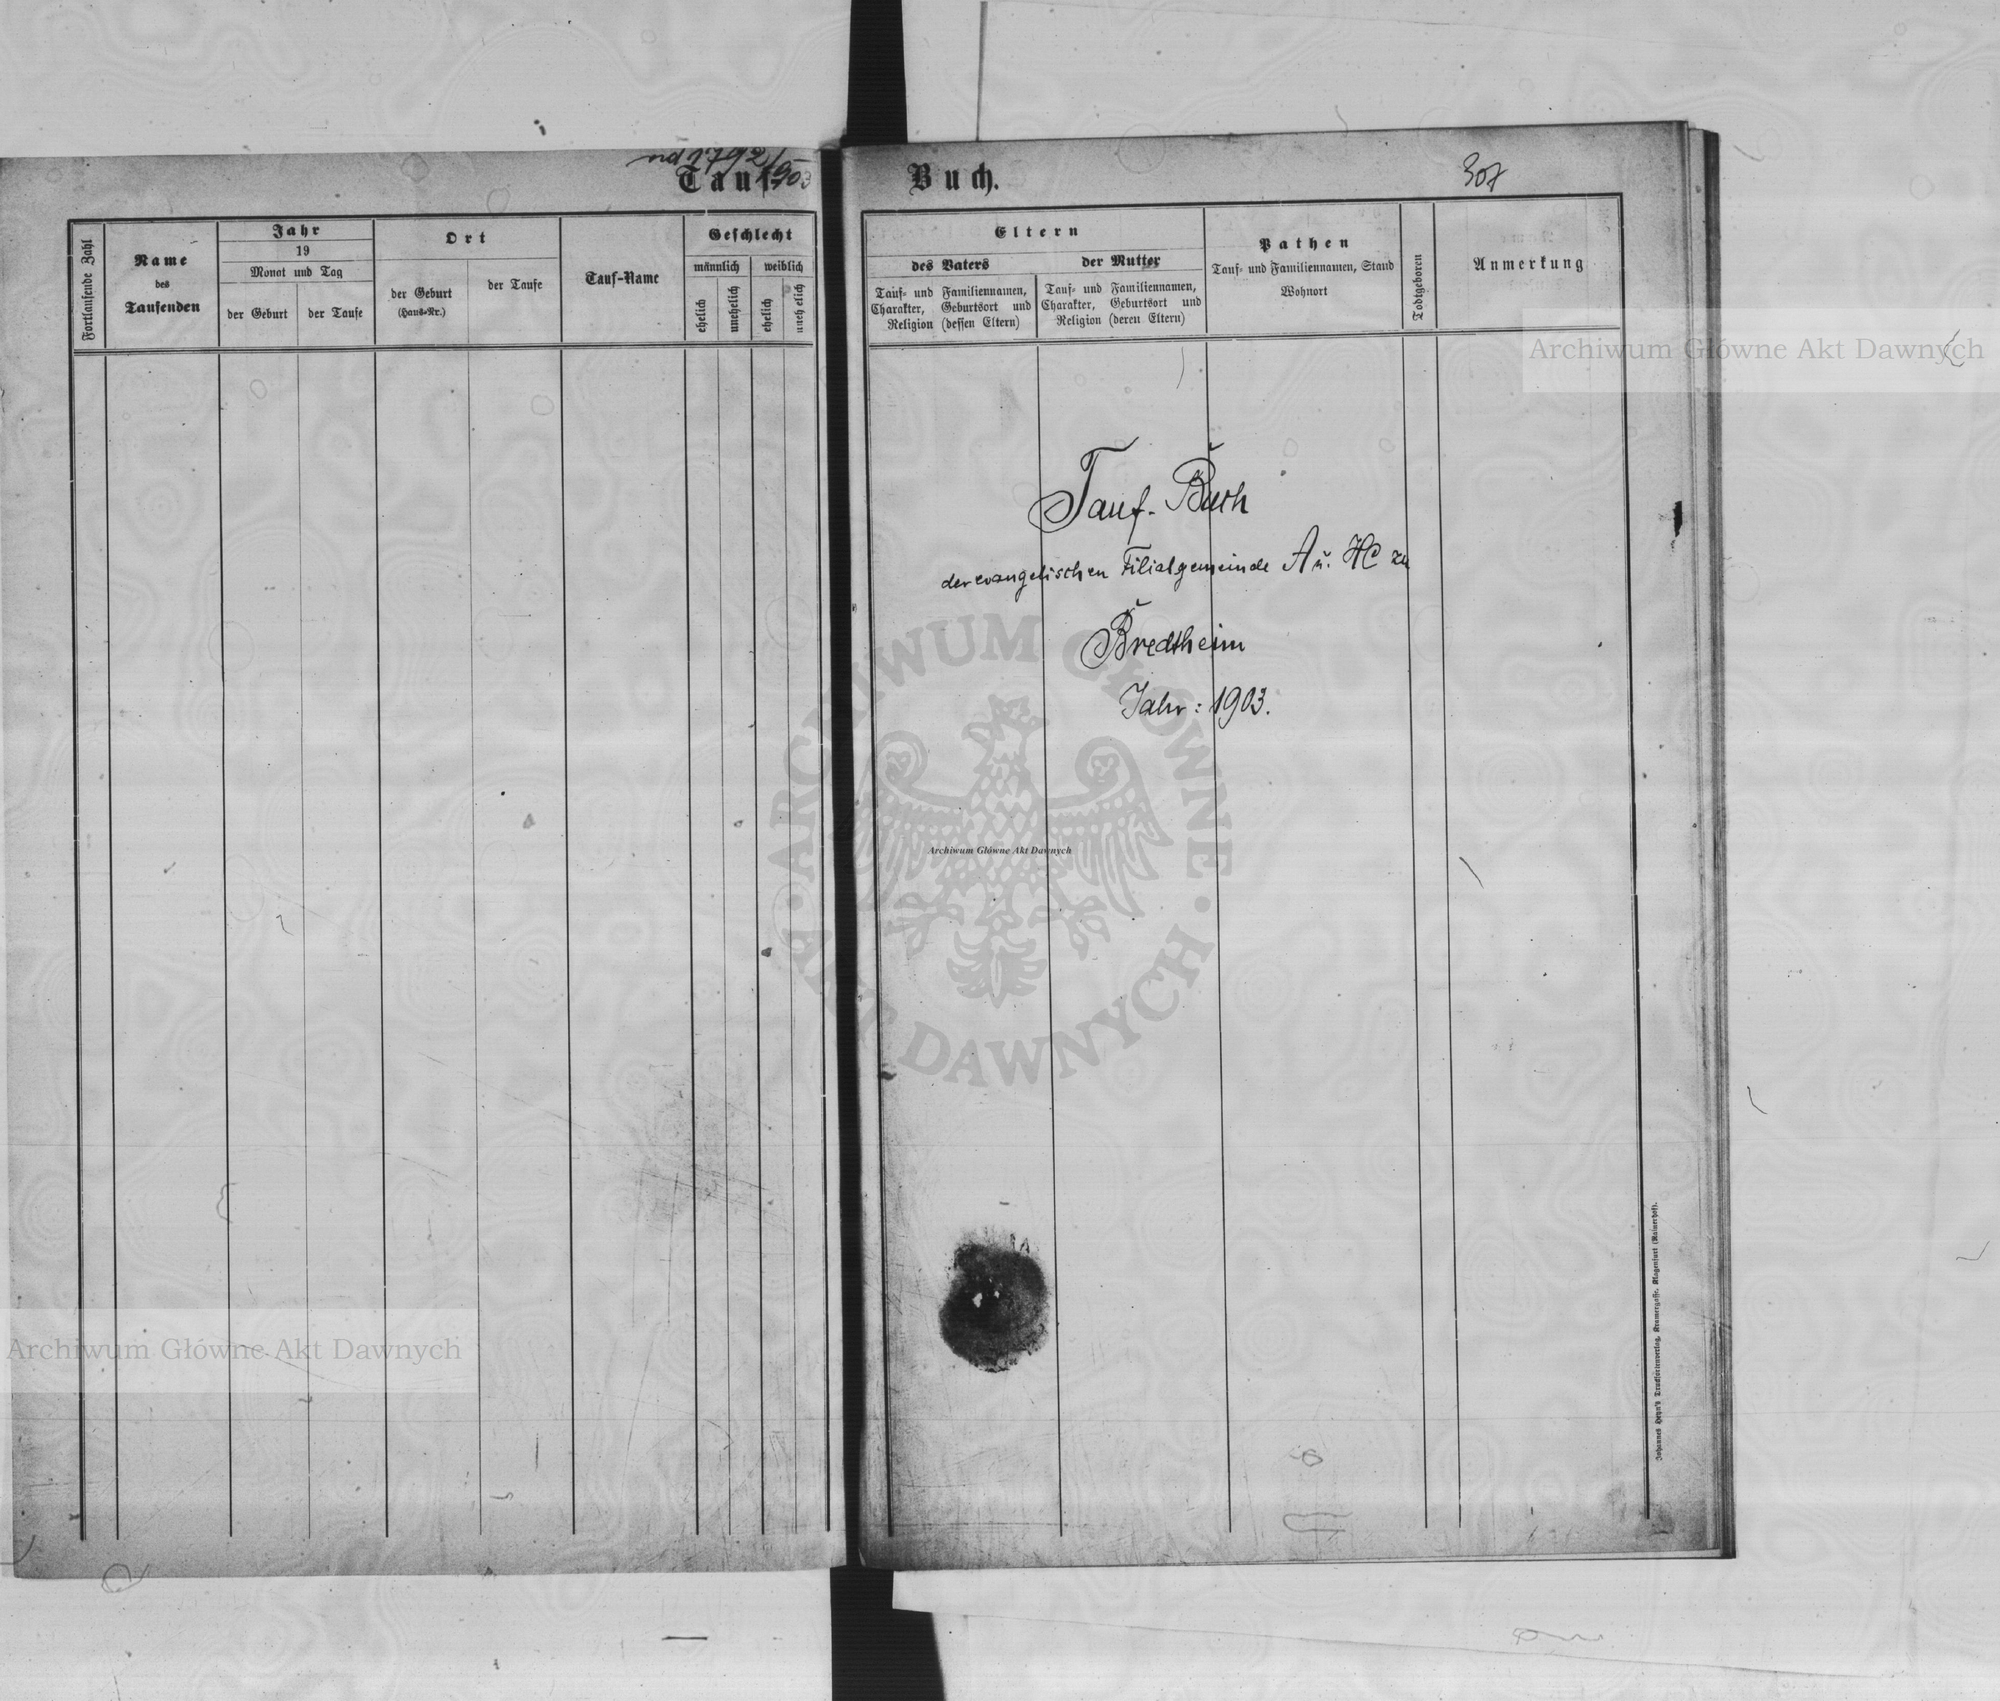 ad 1792/903
Tauf-
Fortlaufende Zahl
Name
des
Taufenden
Jahr
19
Monat und Tag
der Geburt
der Taufe
Ort
der Geburt
(Haus-Nr.)
der Taufe
Tauf-Name
Geschlecht
männlich
weiblich
ehelich
unehelich
ehelich
unehelich
Buch.
307
Eltern
des Vaters
Tauf- und Familiennamen,
Charakter, Geburtsort und
Religion (dessen Eltern)
der Mutter
Tauf- und Familiennamen,
Charakter, Geburtsort und
Religion (deren Eltern)
Pathen
Tauf- und Familiennamen, Stand
Wohnort
Todtgeboren
Anmerkung
Tauf-Buch
der evangelischen Filialgemeinde A u. HC zu
Bredtheim
Jahr: 1903.
Johannes Heyn's Drucksortenverlag, Kramergasse, Klagenfurt (Rainerhof).
Archiwum Główne Akt Dawnych
ARCHIWUM GŁÓWNE · AKT DAWNYCH ·
Archiwum Główne Akt Dawnych
Archiwum Główne Akt Dawnych